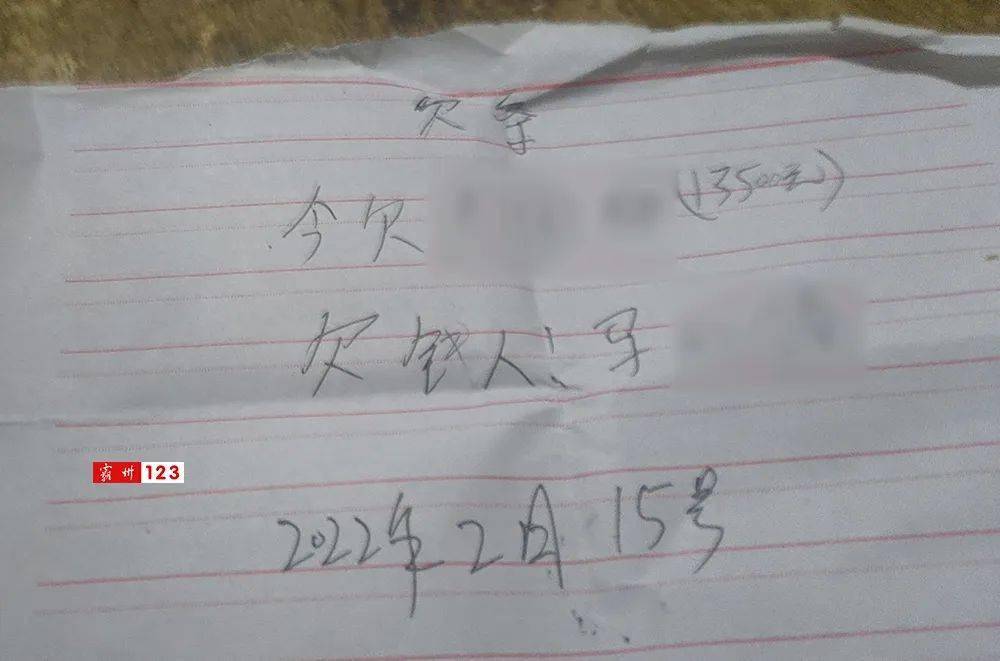 欠条
今欠 (13500元)
欠钱人:
霸州123
2022年2月15号